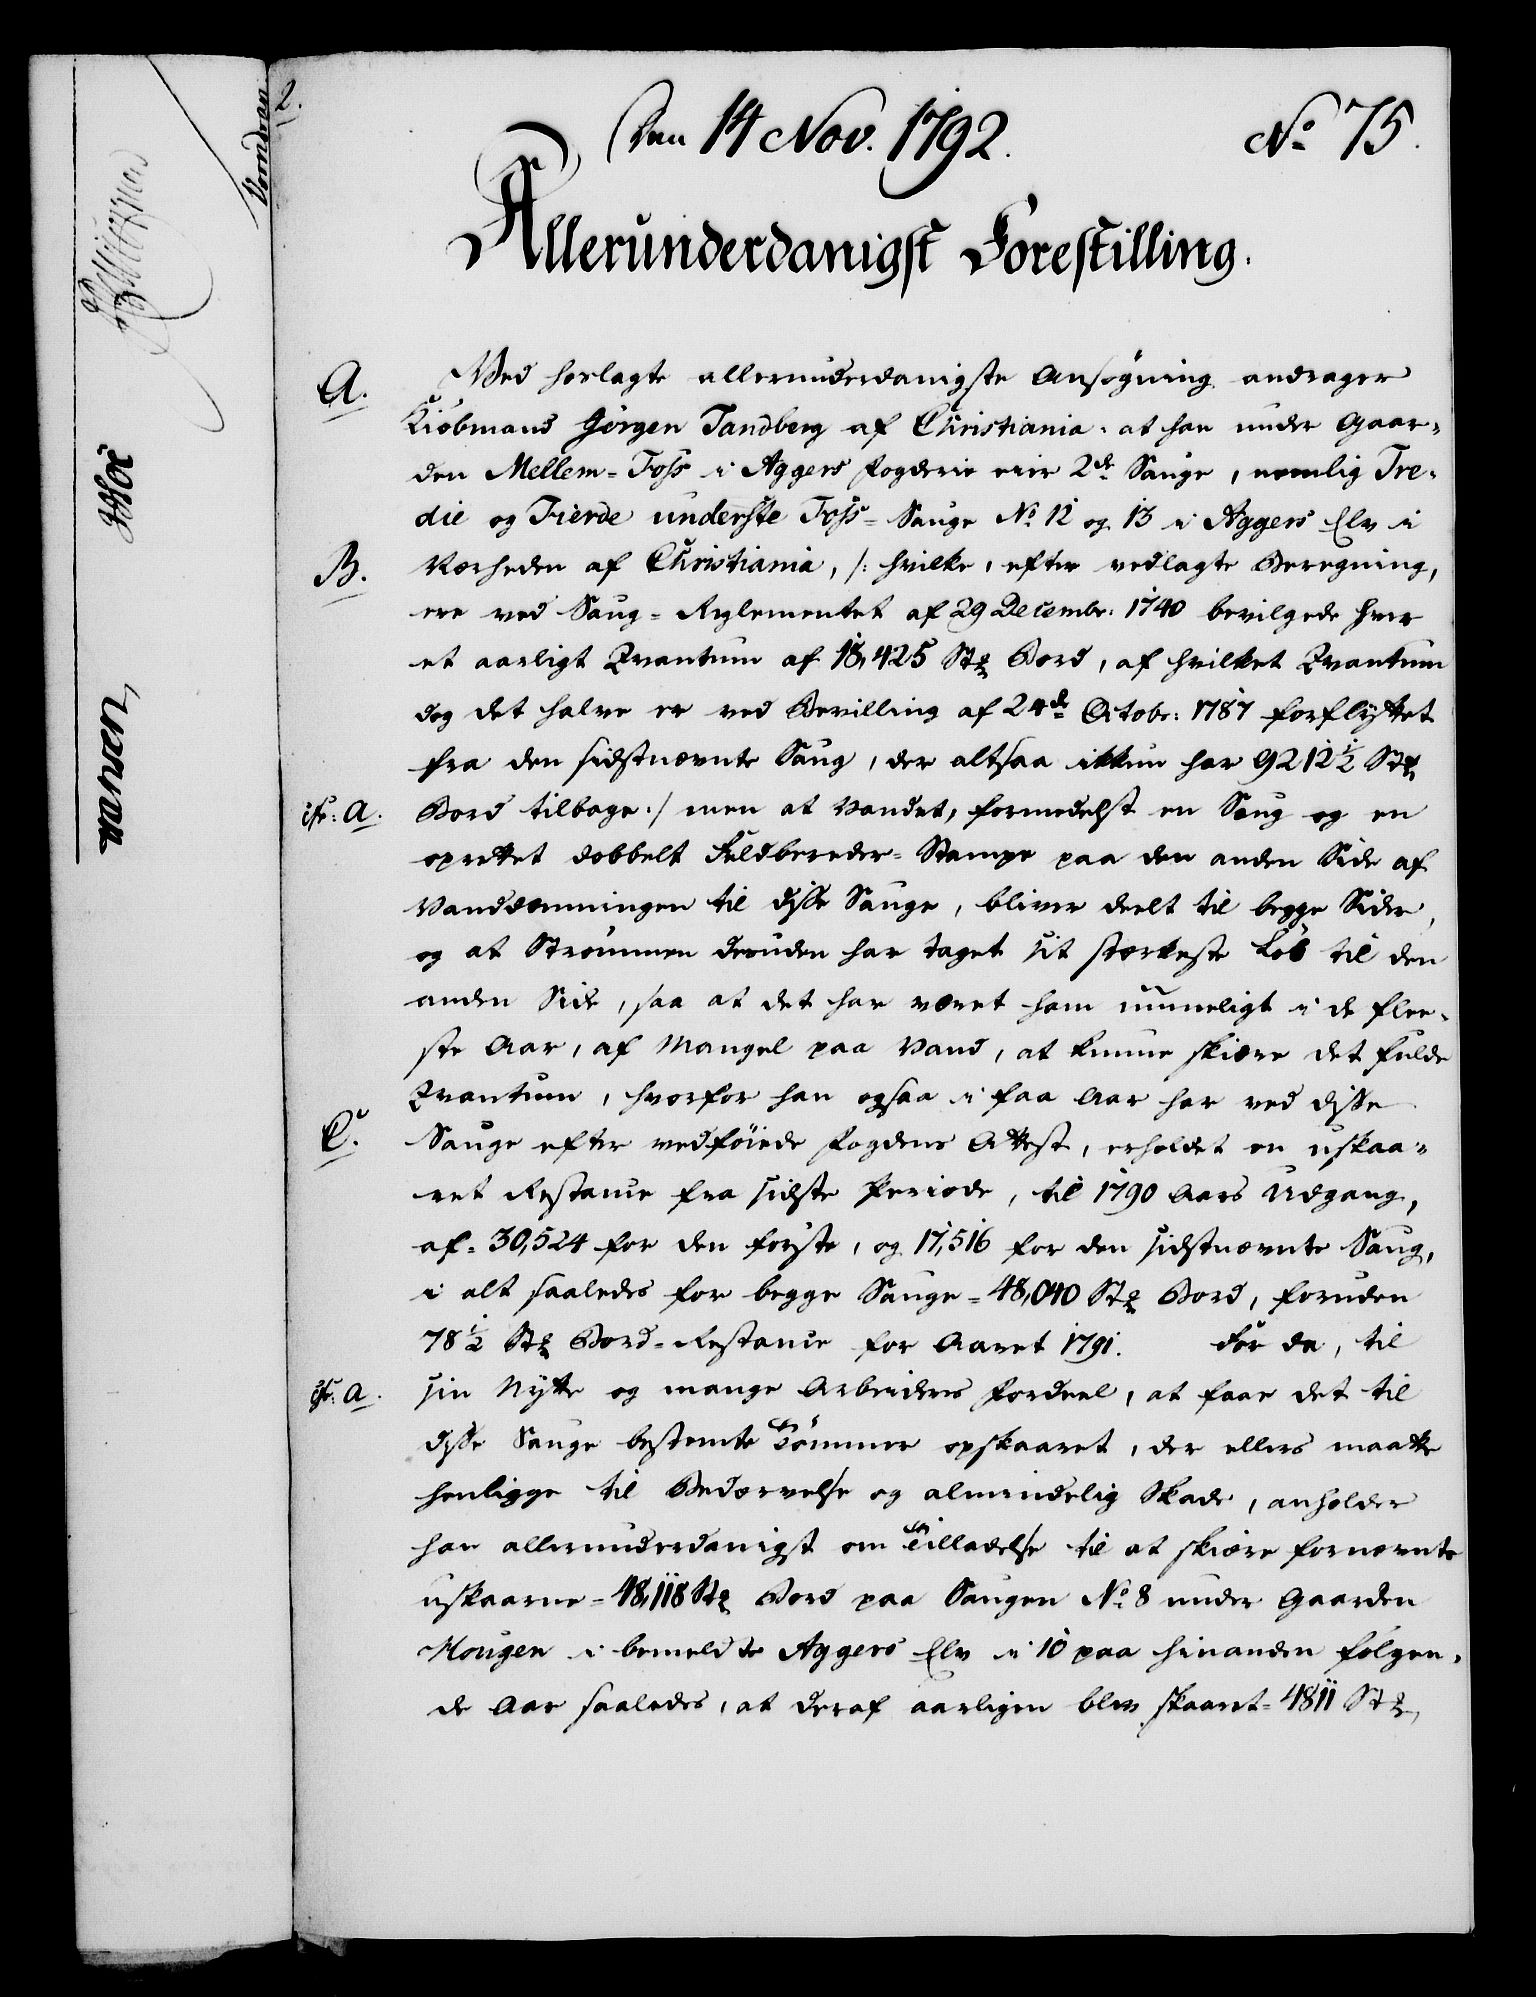 2.
Den 14 Nov. 1792.
No 75.
Allerunderdanigst Forestilling.
A. Med hoslagte allerunderdanigste Ansøgning andrager
Kiøbmand Jørgen Tandberg af Christiania: at han under Gaar=
den Mellem=Foss i Aggers Fogderie eier 2de Sauge, nemlig Tre=
die og Fierde underste Foss=Sauge No 12 og 13 i Aggers Elv i
B. Nærheden af Christiania, /: hvilke, efter vedlagte Beregning,
ere ved Saug=Reglementet af 29 Decembr: 1740 bevilgede hver
et aarligt Qvantum af 18,425 Stk Bord, af hvilket Qvantum
dog det halve er ved Bevilling af 24de Octobr: 1787 forflyttet
fra den sidstnævnte Saug, der altsaa ikkun har 9212½ Stk
cfr: A. Bord tilbage :/ men at Vandet, formedelst en Saug og en
oprettet dobbelt Feldbereder=Stampe paa den anden Side af
Vanddæmningen til disse Sauge, bliver deelt til begge Sider,
og at Strømmen desuden har taget sit stærkeste Løb til den
anden Side, saa at det har været ham umueligt i de flee=
ste Aar, af Mangel paa Vand, at kunne skiære det fulde
Qvantum, hvorfor han ogsaa i faa Aar har ved disse
C. Sauge efter vedføiede Fogdens Attest, erholdet en uskaa=
ret Restance fra sidste Periode, til 1790 Aars Udgang,
af= 30,524 for den første, og 17,516 for den sidstnævnte Saug,
i alt saaledes for begge Sauge= 48,040 Stk Bord, foruden
78½ Stk Bord=Restance for Aaret 1791. For da, til
cfr: A. sin Nytte og mange Arbeideres Fordeel, at faae det til
disse Sauge bestemte Tømmer opskaaret, der ellers maatte
henligge til Bedærvelse og almindelig Skade, anholder
han allerunderdanigst om Tilladelse til at skiære fornævnte
uskaarne= 48,118 Stk Bord paa Saugen No 8 under Gaarden
Mougen i bemeldte Aggers Elv i 10 paa hinanden følgen=
de Aar saaledes, at deraf aarligen blev skaaret= 4811 Stk